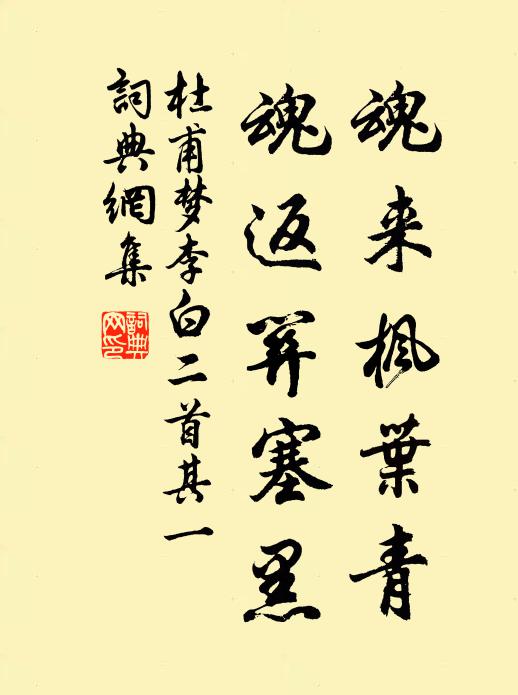 魂来楓葉青
魂返關塞黑
杜甫梦李白二首其一
詞典網集
詞典网印